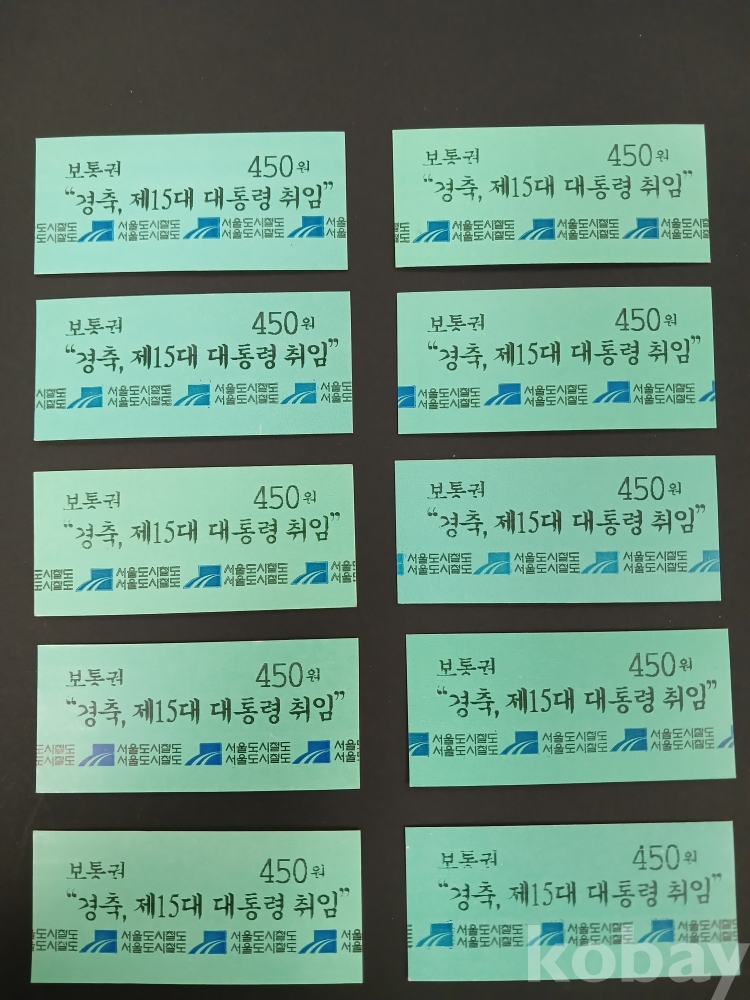 보통권 450원
“경축, 제15대 대통령 취임”
도시철도 서울도시철도 서울도시철도 서울
도시철도 서울도시철도 서울도시철도 서울
보통권 450원
“경축, 제15대 대통령 취임”
서울도시철도 서울도시철도
서울도시철도 서울도시철도
보통권 450원
“경축, 제15대 대통령 취임”
시철도 서울도시철도 서울도시철도 서울
시철도 서울도시철도 서울도시철도 서울
보통권 450원
“경축, 제15대 대통령 취임”
서울도시철도 서울도시철도 서울도시철도
서울도시철도 서울도시철도 서울도시철도
보통권 450원
“경축, 제15대 대통령 취임”
시철도 서울도시철도 서울도시철도
시철도 서울도시철도 서울도시철도
보통권 450원
“경축, 제15대 대통령 취임”
서울도시철도 서울도시철도 서울도시철도
서울도시철도 서울도시철도 서울도시철도
보통권 450원
“경축, 제15대 대통령 취임”
도시철도 서울도시철도 서울도시철도 서울
도시철도 서울도시철도 서울도시철도 서울
보통권 450원
“경축, 제15대 대통령 취임”
서울도시철도 서울도시철도 서울도시철도
서울도시철도 서울도시철도 서울도시철도
보통권 450원
“경축, 제15대 대통령 취임”
도시철도 서울도시철도 서울도시철도 서울
도시철도 서울도시철도 서울도시철도 서울
보통권 450원
“경축, 제15대 대통령 취임”
서울도시철도 서울도시철도
서울도시철도 서울도시철도
kobay